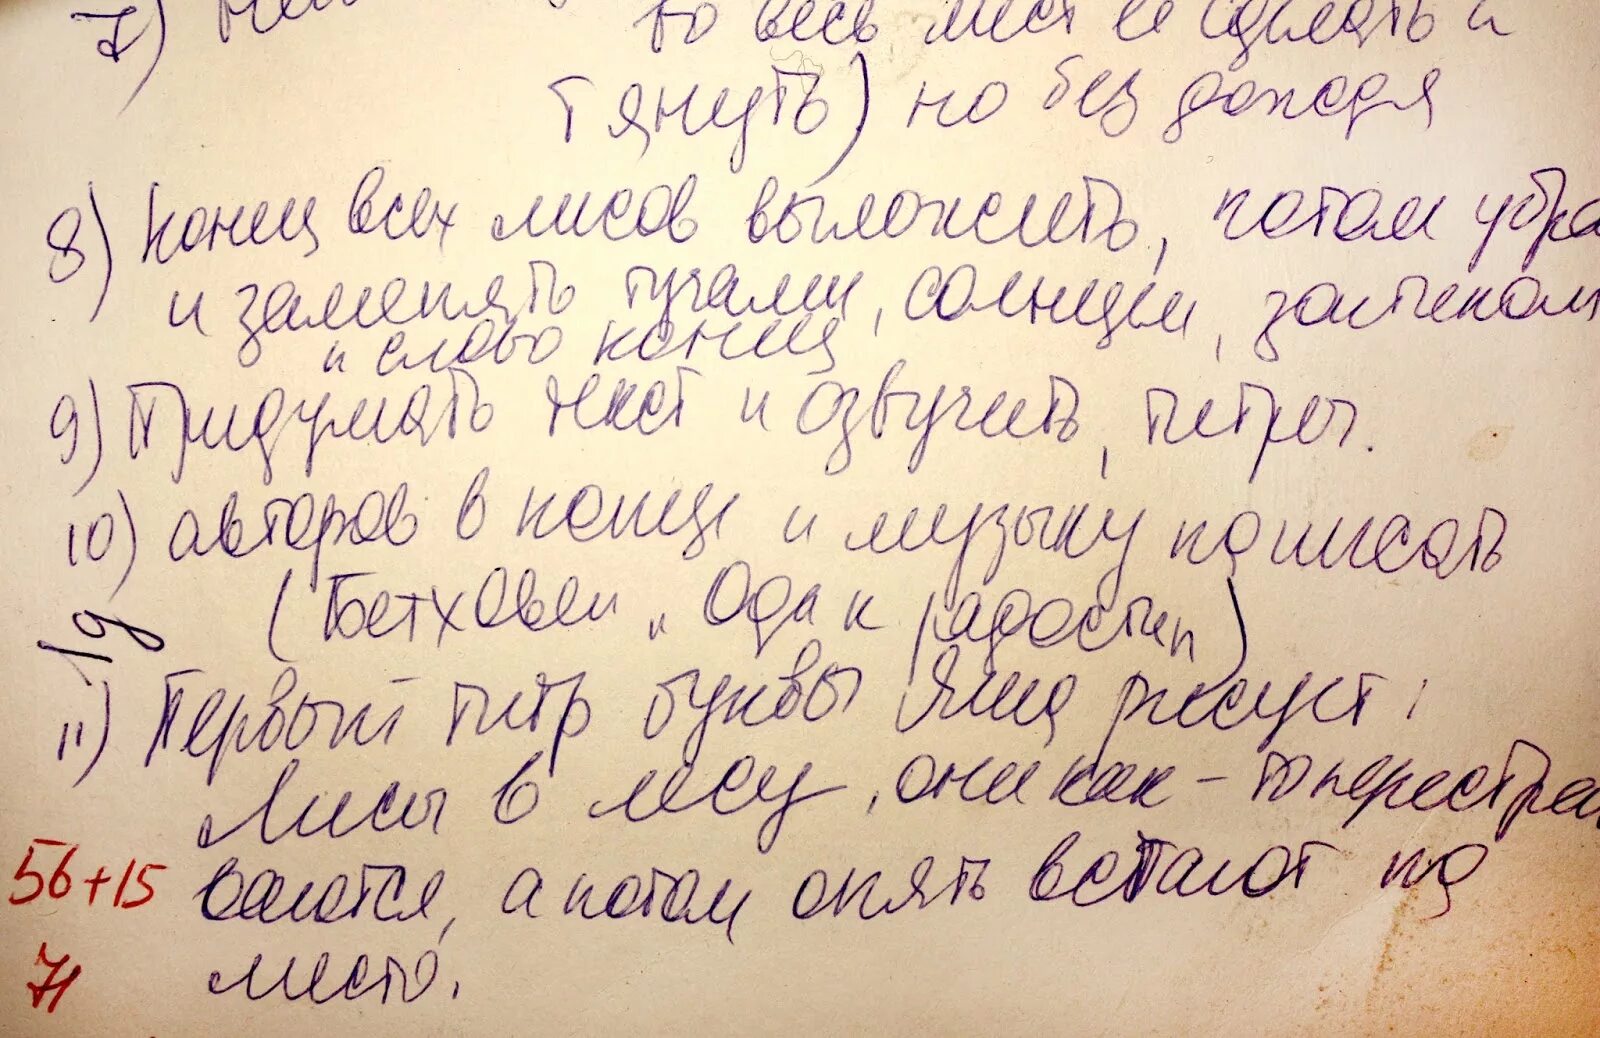 7)
то весь лист её сделать и
тянуть) но без дождя
8) Конец всех лисов выложить, потом убра
и заменять тучами, солнцем,
и слово конец
9) Придумать текст и озвучить, титры.
10) авторов в конце и музыку написать
(Бетховен "Ода к радости")
11) Первый титр буквы Яша рисует:
Лисы в лесу, они как-то перестраи
ваются, а потом опять встают на
место.
56+15
71